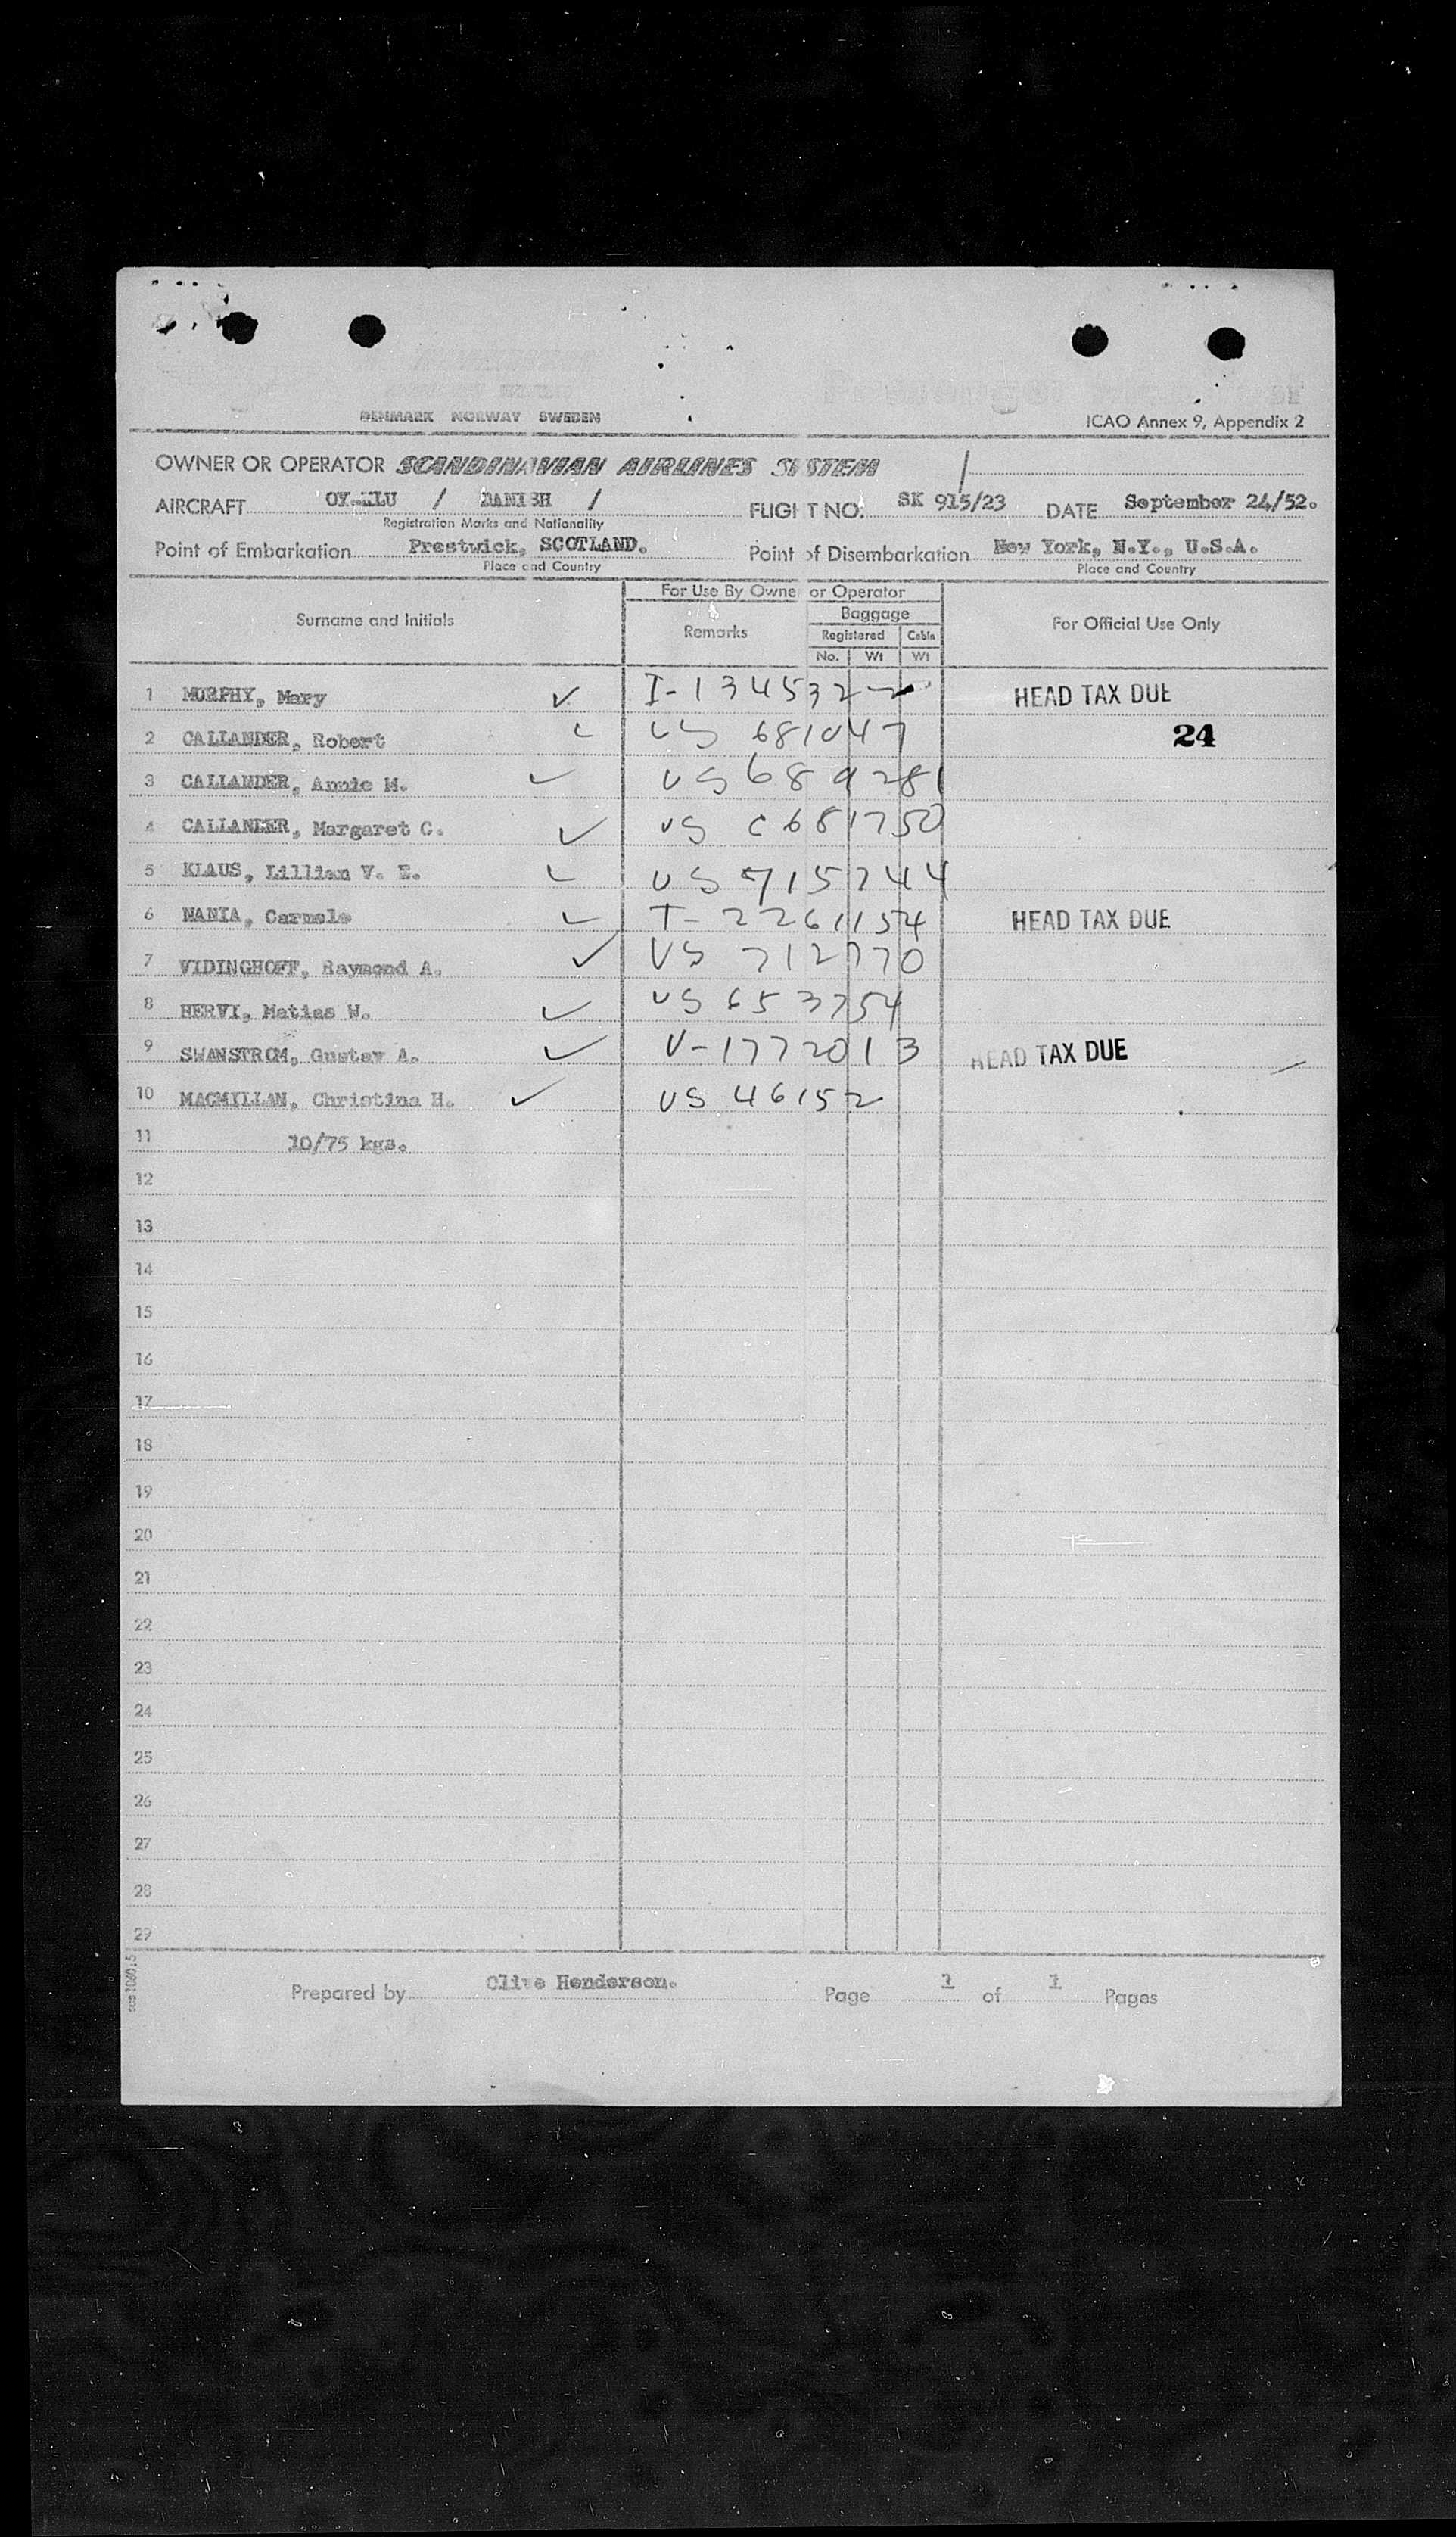 DENMARK NORWAY SWEDEN
ICAO Annex 9, Appendix 2
OWNER OR OPERATOR SCANDINAVIAN AIRLINES SYSTEM
AIRCRAFT / DANISH / FLIGHT NO. SK 915/23 DATE September 24/52.
Registration Marks and Nationality
Point of Embarkation Prestwick, SCOTLAND. Point of Disembarkation New York, N.Y., U.S.A.
Place and Country Place and Country
For Use By Owner or Operator
Surname and Initials Remarks Baggage For Official Use Only
Registered Cabin
No. Wt Wt
1 MURPHY, Mary ✓ I-1345322 HEAD TAX DUE
2 CALLANDER, Robert ✓ US 681047 24
3 CALLANDER, Annie M. ✓ US 689281
4 CALLANDER, Margaret C. ✓ US C681750
5 KLAUS, Lillian V. E. ✓ US 715244
6 NANIA, Carmelo ✓ T-2261154 HEAD TAX DUE
7 VIDINGHOFF, Raymond A. ✓ US 712770
8 HERVI, Matias W. ✓ US 653754
9 SWANSTROM, Gustav A. ✓ V-1772013 HEAD TAX DUE
10 MACMILLAN, Christina H. ✓ US 46152
11 10/75 kgs.
12
13
14
15
16
17
18
19
20
21
22
23
24
25
26
27
28
29
Prepared by Clive Henderson. Page 1 of 1 Pages